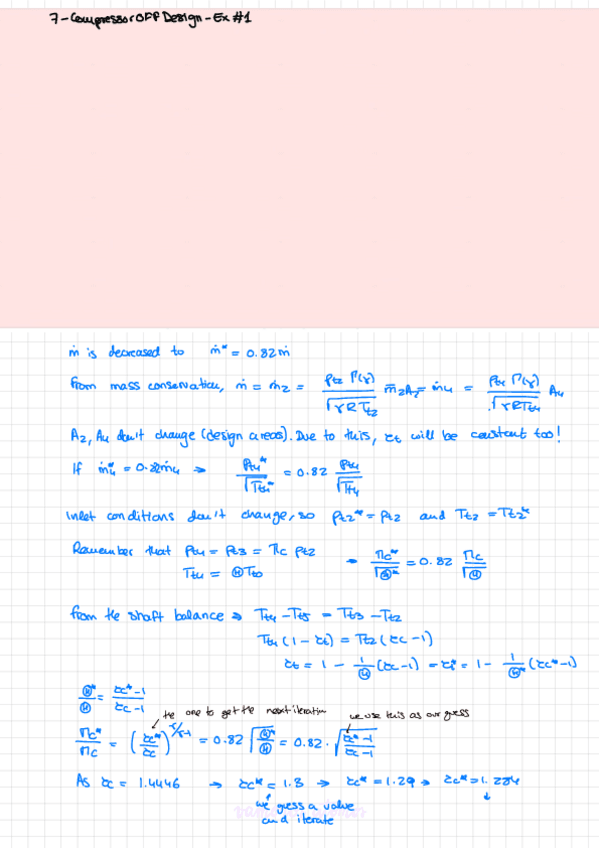 7-Compressor OFF Design - Ex #1
ṁ is decreased to ṁ* = 0.82ṁ
From mass conservation, ṁ = ṁ2 = pt2 Γ(γ) / √γRTt2 m̄2A2 = ṁ4 = pt4 Γ(γ) / √γRTt4 A4
A2, A4 don't change (design areas). Due to this, τt will be constant too!
If ṁ4* = 0.82ṁ4 → pt4* / √Tt4* = 0.82 pt4 / √Tt4
Inlet conditions don't change, so pt2* = pt2 and Tt2 = Tt2*
Remember that pt4 = pt3 = πc pt2 → πc* / √Θ* = 0.82 πc / √Θ
Tt4 = ΘTt0
from the shaft balance → Tt4 - Tt5 = Tt3 - Tt2
Tt4 (1 - τt) = Tt2 (τc - 1)
τt = 1 - 1/Θ (τc - 1) = τt* = 1 - 1/Θ* (τc* - 1)
Θ*/Θ = τc* - 1 / τc - 1
the one to get the next iteration we use this as our guess
πc*/πc = (τc*/τc)^γ/γ-1 = 0.82 √Θ*/Θ = 0.82 · √τc* - 1 / τc - 1
As τc = 1.4446 → τc* = 1.3 → τc* = 1.29 → τc* = 1.284
we guess a value
and iterate